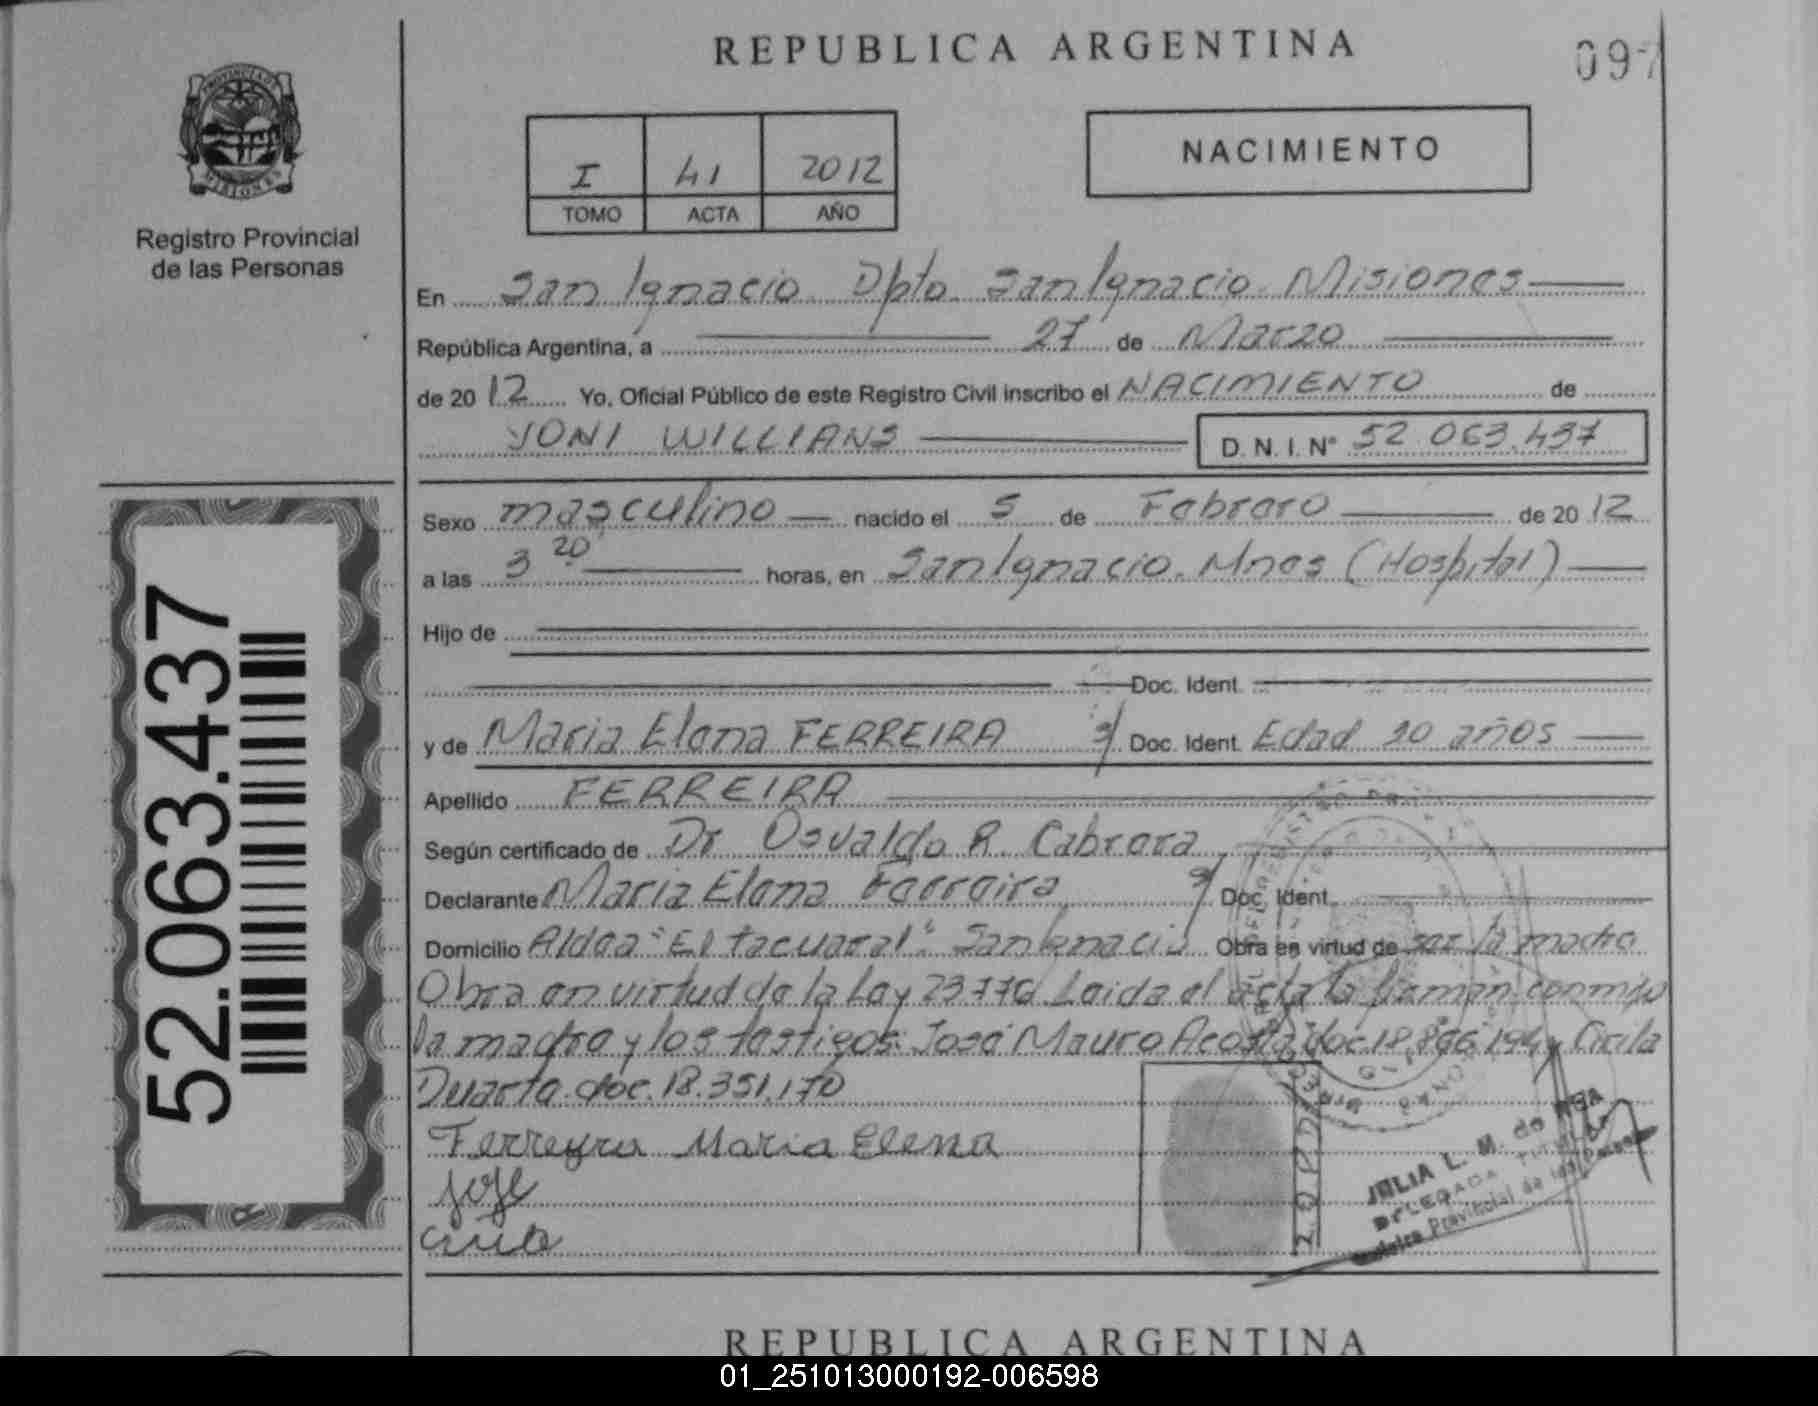 REPUBLICA ARGENTINA
097
PROVINCIA DE
MISIONES
Registro Provincial
de las Personas
I 41 2012
TOMO ACTA AÑO
NACIMIENTO
En San Ignacio Dpto. San Ignacio. Misiones
República Argentina, a 27 de Marzo
de 2012 Yo, Oficial Público de este Registro Civil inscribo el NACIMIENTO de
JONI WILLIANS D. N. I. Nº 52 063.437
Sexo masculino nacido el 5 de Febrero de 2012
a las 3 20 horas, en San Ignacio. Mnes (Hospital)
Hijo de
Doc. Ident.
y de Maria Elena FERREIRA Doc. Ident. Edad 20 años
Apellido FERREIRA
Según certificado de Dr Osvaldo R. Cabrera
Declarante Maria Elena Ferreira Doc. Ident.
Domicilio Aldea "El tacuaral" San Ignacio Obra en virtud de ser la madre
Obra en virtud de la Ley 23776 Leida el acta la firman conmigo
la madre y los testigos: José Mauro Acosta doc 18.866.194 y Cirila
Duarte doc. 18.351.170
Ferreyra Maria Elena
José
JULIA L. M. de
DELEGADA TITULAR
Registro Provincial de las Personas
52.063.437
REPUBLICA ARGENTINA
01_251013000192-006598